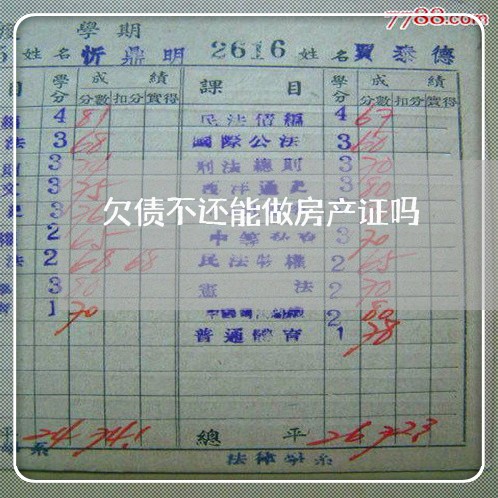 7788.com
學期
5 姓名 忻鼎明 2616 姓名 賈泰德
目 學分 成績 課目 學分 成績
分數 扣分 實得 分數 扣分 實得
4 81 民法債編 4 67
法 3 68 國際公法 3 60
3 刑法總則 3 70
文 3 75 西洋通史 3 80
3
欠债不还能做房产证吗
權 2 65 3 70
法 2 68 68 民法物權 2 65
3 80 憲法 2 70
1 70 2 80
普通體育 1 78
平 24 74.1 總平 26 72.3
系 法律學系